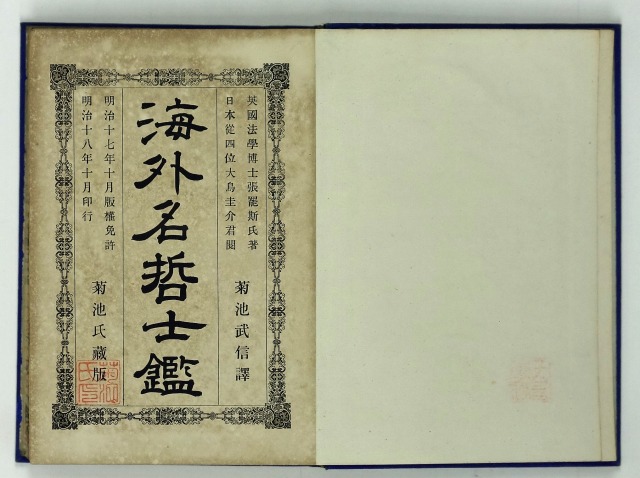 英國法學博士張罷斯氏著
日本從四位大鳥圭介君閲
菊池武信譯
海外名哲士鑑
明治十七年十月版權免許
明治十八年十月印行
菊池氏藏版